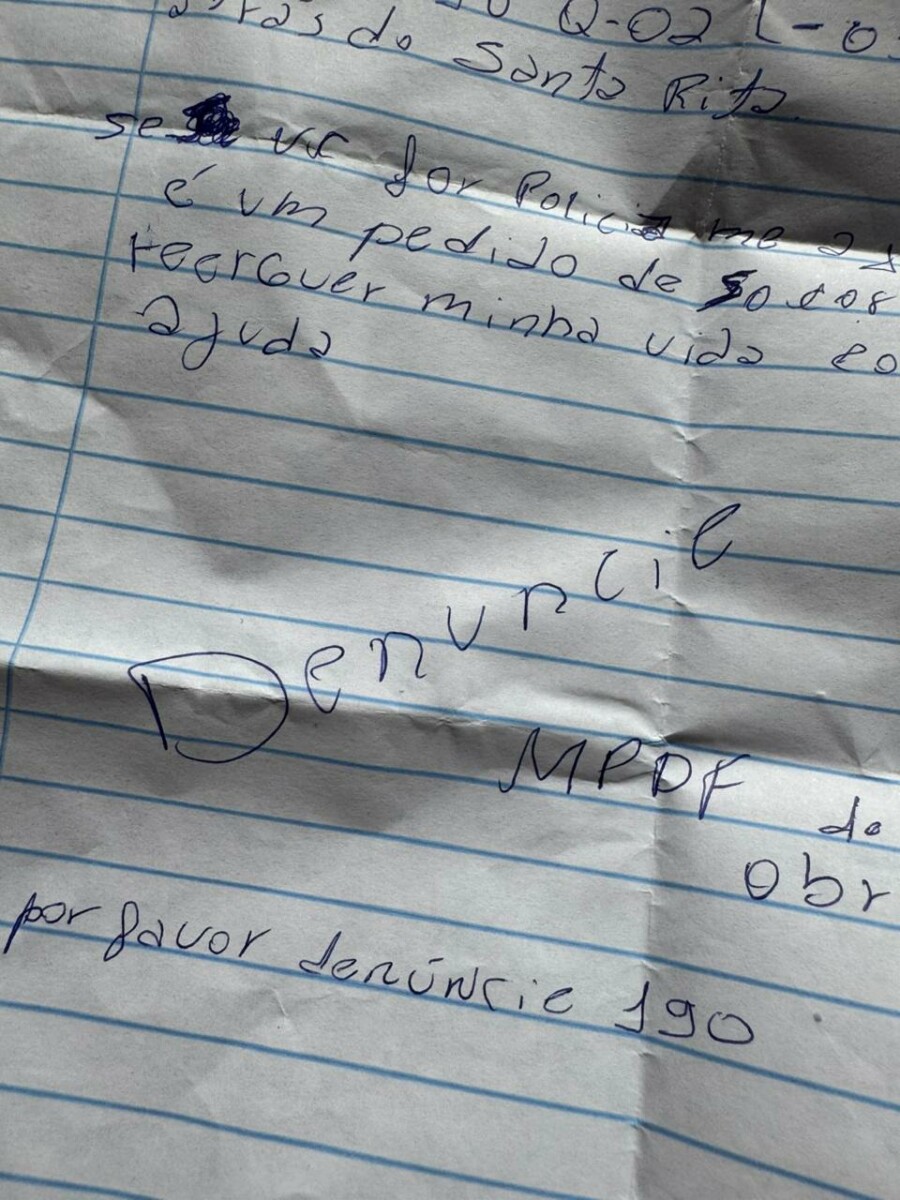 Q-02 L-0
atrás do Santa Rita.
se vc for Polícia me aj
é um pedido de socor
reerguer minha vida co
ajuda
Denuncie
MPDF
do
obr
por favor denúncie 190